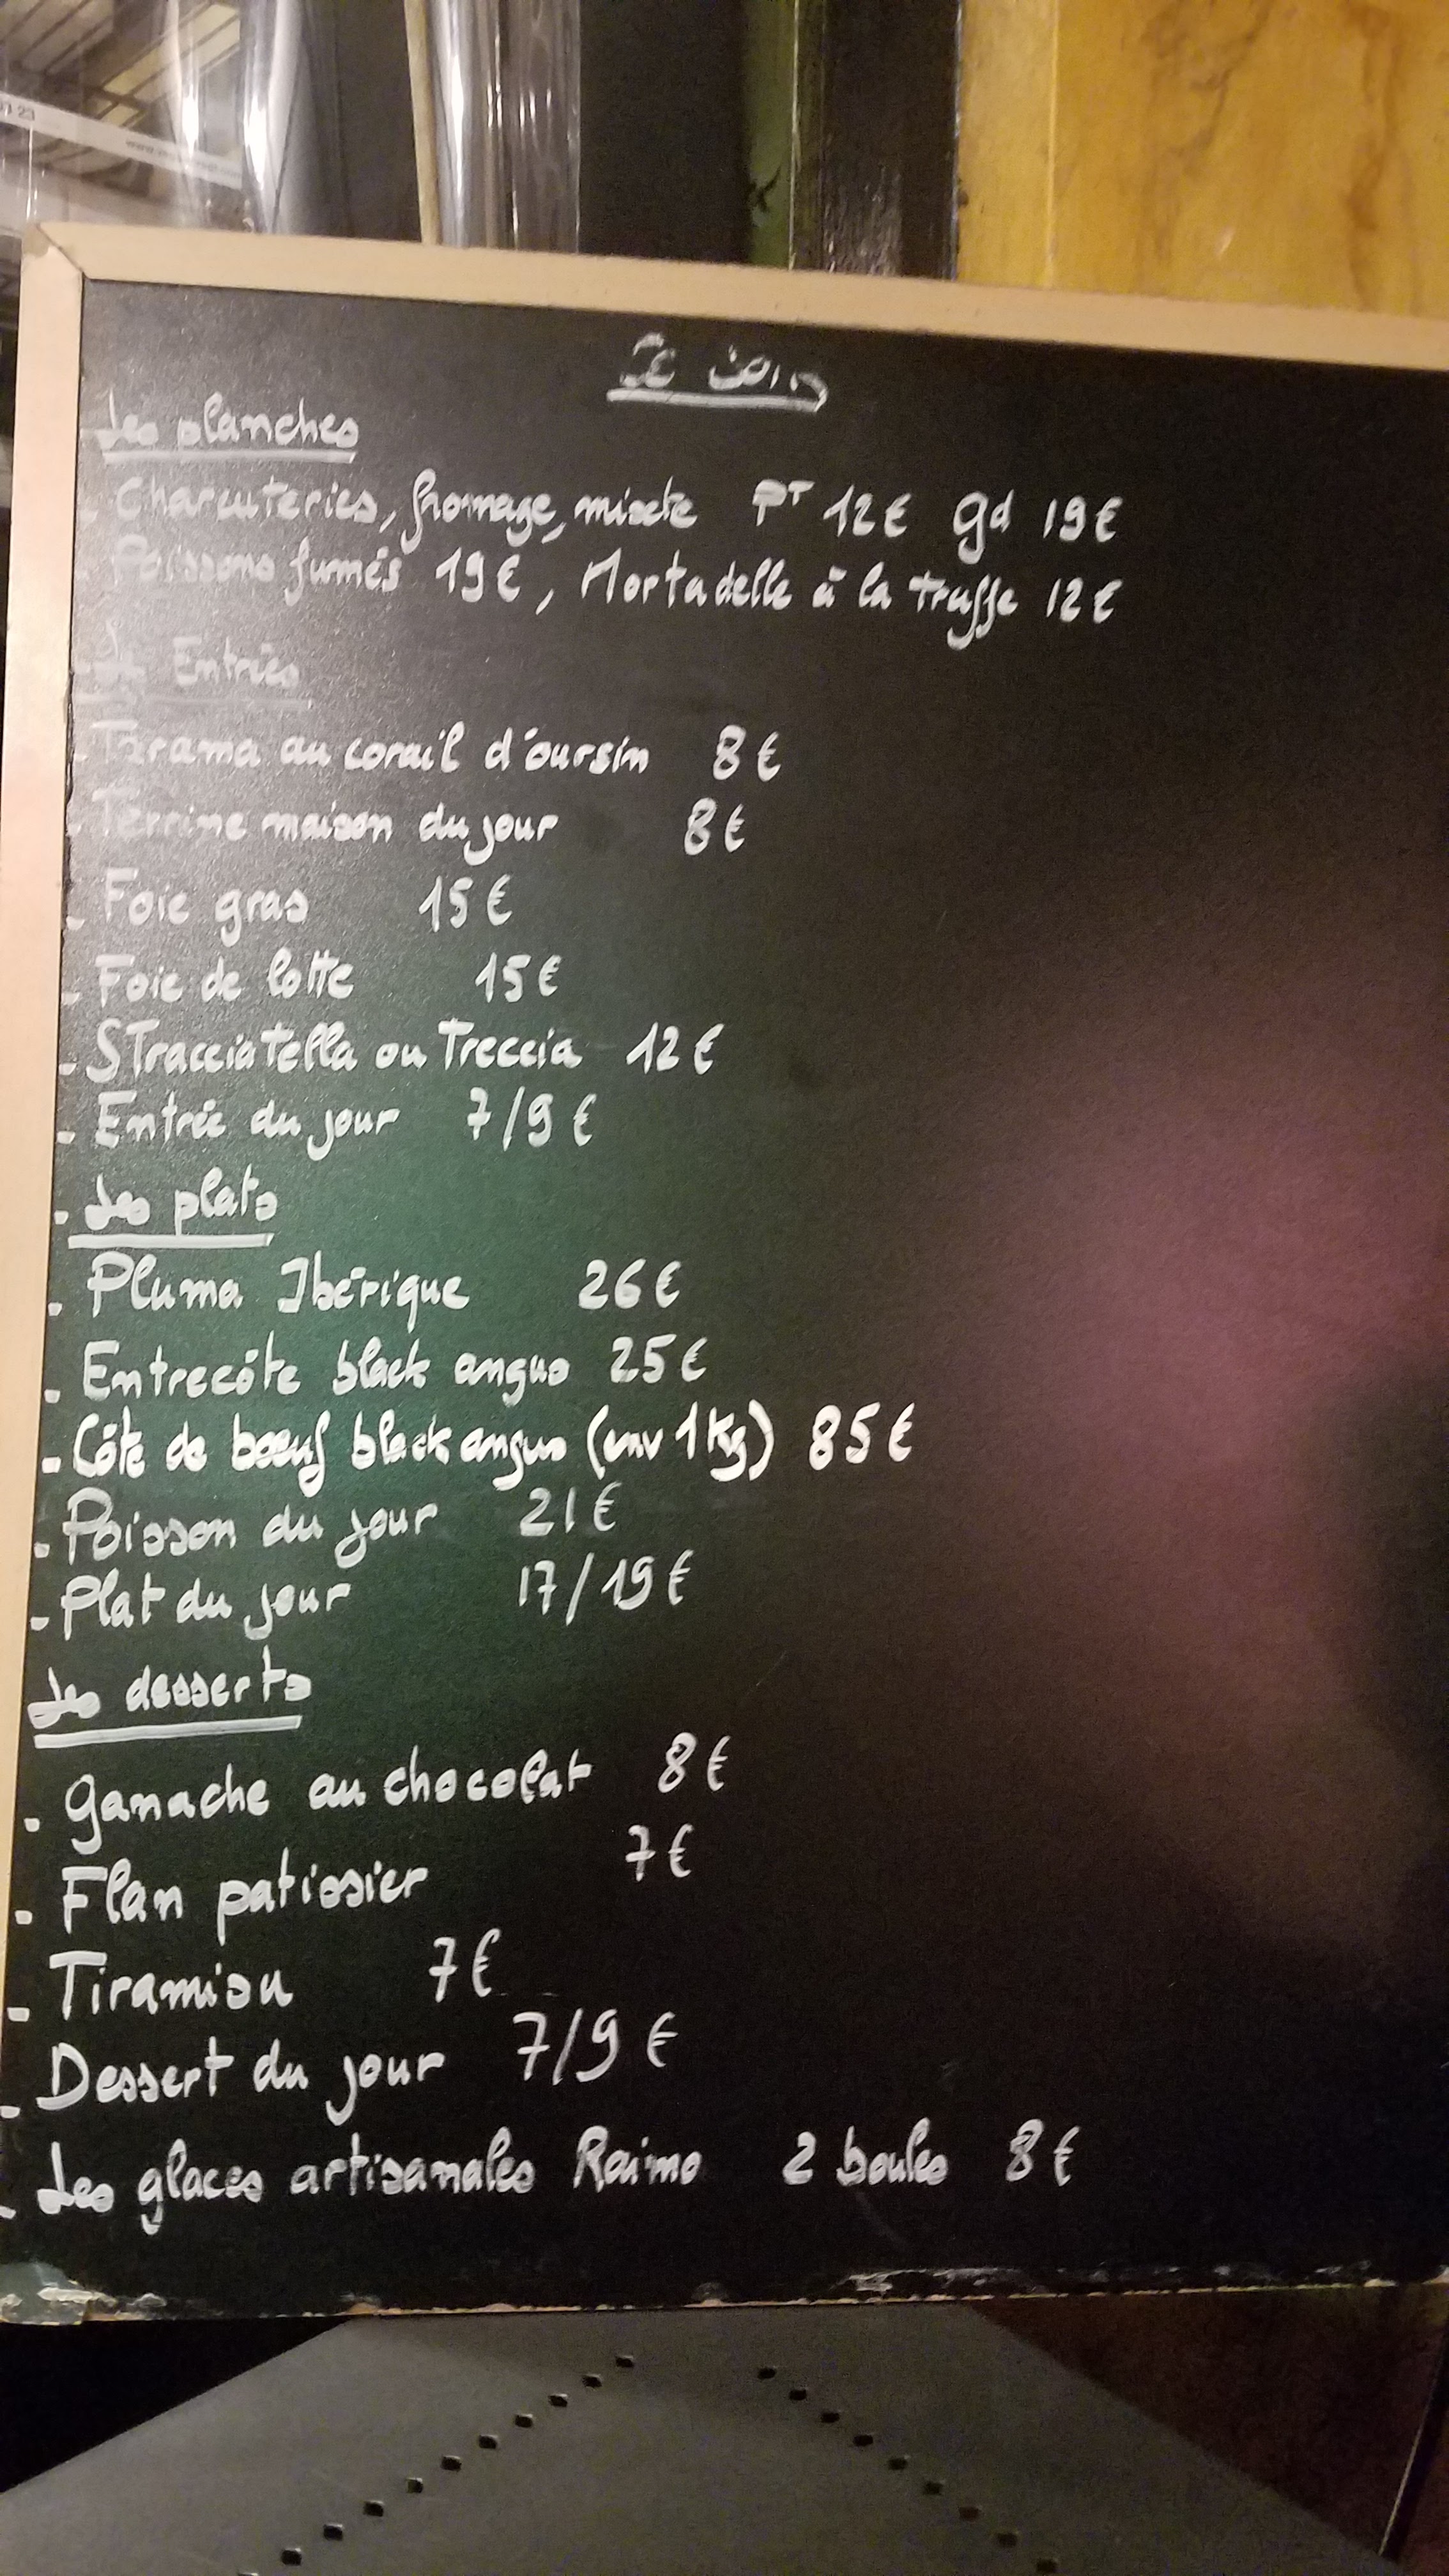 Ce soir
Les planches
- Charcuteries, fromage, mixte PT 12€ gd 19€
- Poissons fumés 19€, Mortadelle à la truffe 12€
Entrées
- Tarama au corail d'oursin 8€
- Terrine maison du jour 8€
- Foie gras 15€
- Foie de lotte 15€
- Stracciatella ou Treccia 12€
- Entrée du jour 7/9€
- Les plats
- Pluma Ibérique 26€
- Entrecôte black angus 25€
- Côte de bœuf black angus (env 1kg) 85€
- Poisson du jour 21€
- Plat du jour 17/19€
Les desserts
- Ganache au chocolat 8€
- Flan patissier 7€
- Tiramisu 7€
- Dessert du jour 7/9€
- Les glaces artisanales Raimo 2 boules 8€